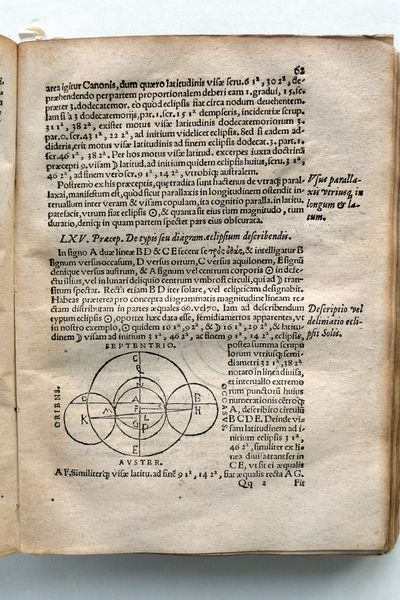 62
area igitur Canonis, dum quæro latitudinis visæ scru. 6 1², 30 2², de-
præhendo per partem proportionalem deberi eam 1. gradui, 15. sc.
præter 3. dodecatemor. eo quod eclipsis fiat circa nodum deuehentem.
Iam si à 3 dodecatemorijs, par. 1. scr. 15 1² dempseris, incidentiæ scrup.
31 1², 38 2², existet motus visæ latitudinis dodecatemoriorum 3.
par. 0. scr. 43 1², 22 2², ad initium videlicet eclipsis. Sed si eadem ad-
dideris, erit motus visæ latitudinis ad finem eclipsis dodecat. 3. part. 1.
scr. 46 1², 38 2². Per hos motus visæ latitud. excerpes iuxta doctrinã
præcepti 9. visam ☽ latitud. ad initium quidem eclipsis huius, scru. 3 1²,
46 2², ad finem verò scr. 9 1², 14 2², vtrobiq; australem.
Postremo ex his præceptis, quę tradita sunt hactenus de vtraq; paral-
laxi, manifestum est, quod sicut parallaxis in longitudinem ostendit in-
teruallum inter veram & visam copulam, ita cognitio paralla. in latitu.
patefacit, vtrum fiat eclipsis ☉, & quanta sit eius tum magnitudo, tum
duratio, deniq; in quam partem spectet pars eius obscurata.
Vsus paralla-
xis vtriusq; in
longum & la-
tum.
LXV. Præcep. De typis seu diagram. eclipsium describendis.
In signo A duæ lineæ B D & C E secent se πρὸς ὀρθὰς, & intelligatur B
signum versus occasum, D versus ortum, C versus aquilonem, E signũ
denique versus austrum, & A signum vel centrum corporis ☉ in defe-
ctu illius, vel in lunari deliquio centrum vmbrosi circuli, qui ad ☽ tran-
situm spectat. Recta etiam B D iter solare, vel eclipticam designabit.
Habeas præterea pro concepta diagrammatis magnitudine lineam re-
ctam distributam in partes æquales 60. vel 70. Iam ad describendum
typum eclipsis ☉, oportet hæc data esse, semidiametros apparentes, vt
in nostro exemplo, ☉ quidem 16 1², 9 2², & ☽ 16 1², 29 2², & latitu-
dinem ☽ visam ad initium 3 1², 46 2², ad finem 9 1², 14 2², eclipsis,
Descriptio vel
delineatio ecli-
psis Solis.
SEPTENTRIO.
ORIENS.
OCCASVS.
AVSTER.
postea summa scrupu
lorum vtriusq; semi-
diametri 32 1², 38 2²
notato in linea diuisa,
et interuallo extremo
rum punctorũ huius
numerationis cẽtroq;
A, describito circulũ
B C D E. Deinde vi-
sam latitudinem ad i-
nitium eclipsis 3 1²,
46 2², similiter ex li-
nea diuisa transfer in
C E, vt sit ei æqualis
A F. Similiterq; visæ latitu. ad finẽ 9 1², 14 2², fiat æqualis recta A G.
Qq 2 Fit